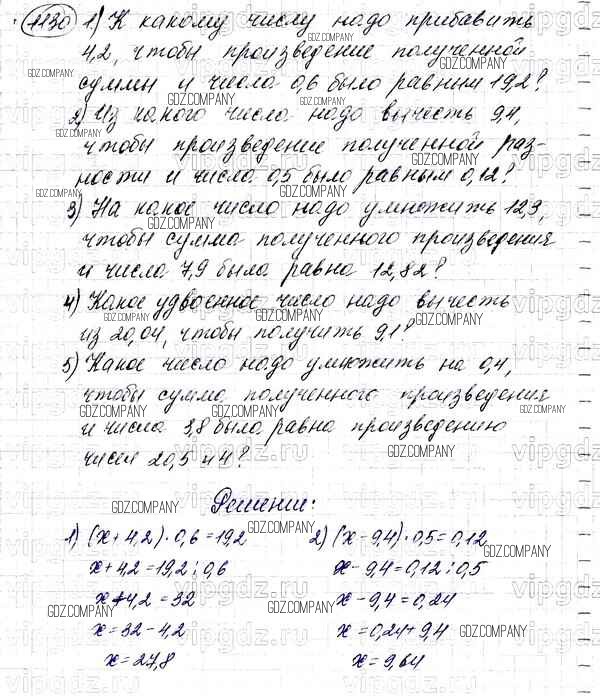 1130 1) К какому числу надо прибавить
4,2, чтобы произведение полученной
суммы и числа 0,6 было равным 19,2?
2) Из какого числа надо вычесть 9,4,
чтобы произведение полученной раз-
ности и числа 0,5 было равным 0,12?
3) На какое число надо умножить 12,3,
чтобы сумма полученного произведения
и числа 7,9 была равна 12,82?
4) Какое удвоенное число надо вычесть
из 20,04, чтобы получить 9,1?
5) Какое число надо умножить на 0,4,
чтобы сумма полученного произведения
и числа 3,8 была равна произведению
чисел 20,5 и 4?
Решение:
1) (x + 4,2) · 0,6 = 19,2 2) (x - 9,4) · 0,5 = 0,12
x + 4,2 = 19,2 : 0,6 x - 9,4 = 0,12 : 0,5
x + 4,2 = 32 x - 9,4 = 0,24
x = 32 - 4,2 x = 0,24 + 9,4
x = 27,8 x = 9,64